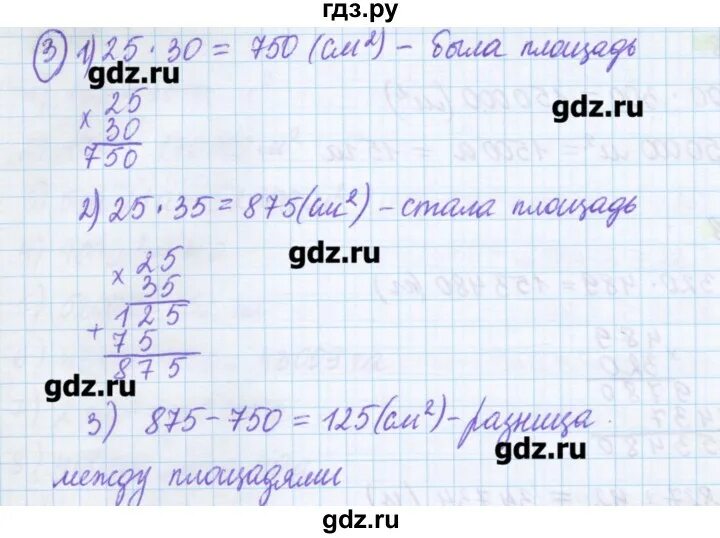 гдз.ру
③ 1) 25 · 30 = 750 (см²) – была площадь
gdz.ru
× 25
gdz.ru
30
750
2) 25 · 35 = 875 (см²) – стала площадь
gdz.ru
× 25
35
+ 125
75
875
gdz.ru
3) 875 – 750 = 125 (см²) – разница
gdz.ru
между площадями
gdz.ru